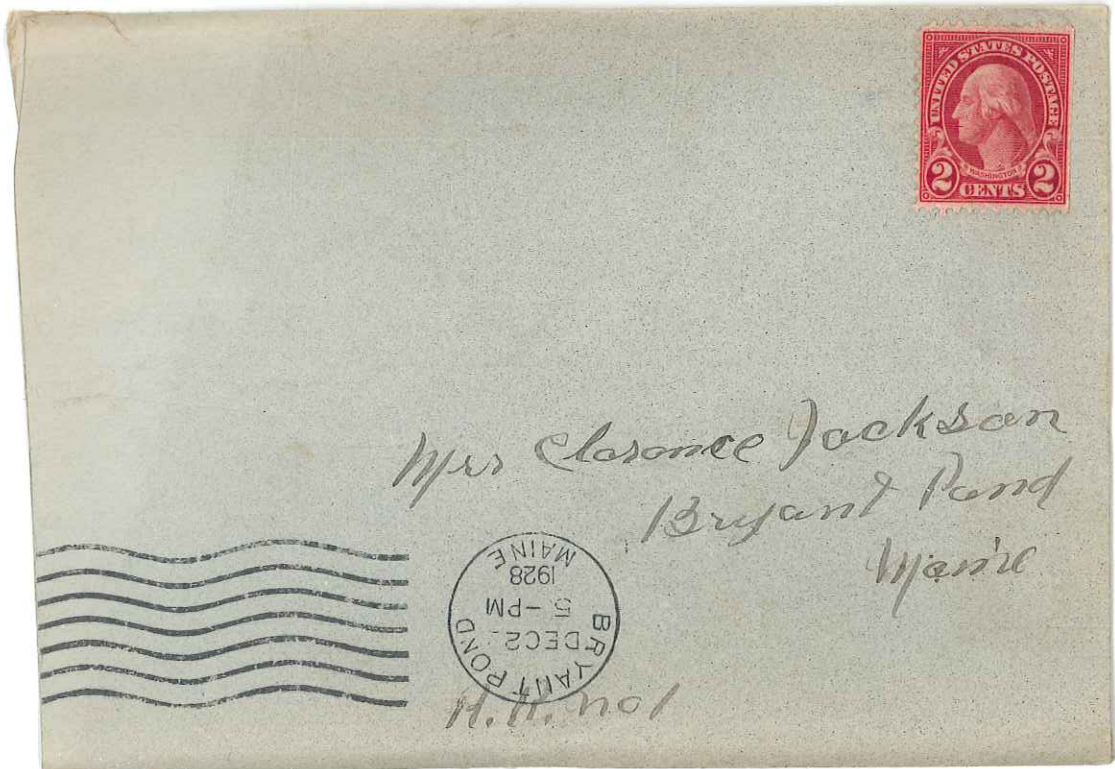 UNITED STATES POSTAGE
WASHINGTON
2 CENTS 2
Mrs Clarence Jackson
Bryant Pond
Maine
BRYANT POND
DEC 2
5 -PM
1928
MAINE
no 1